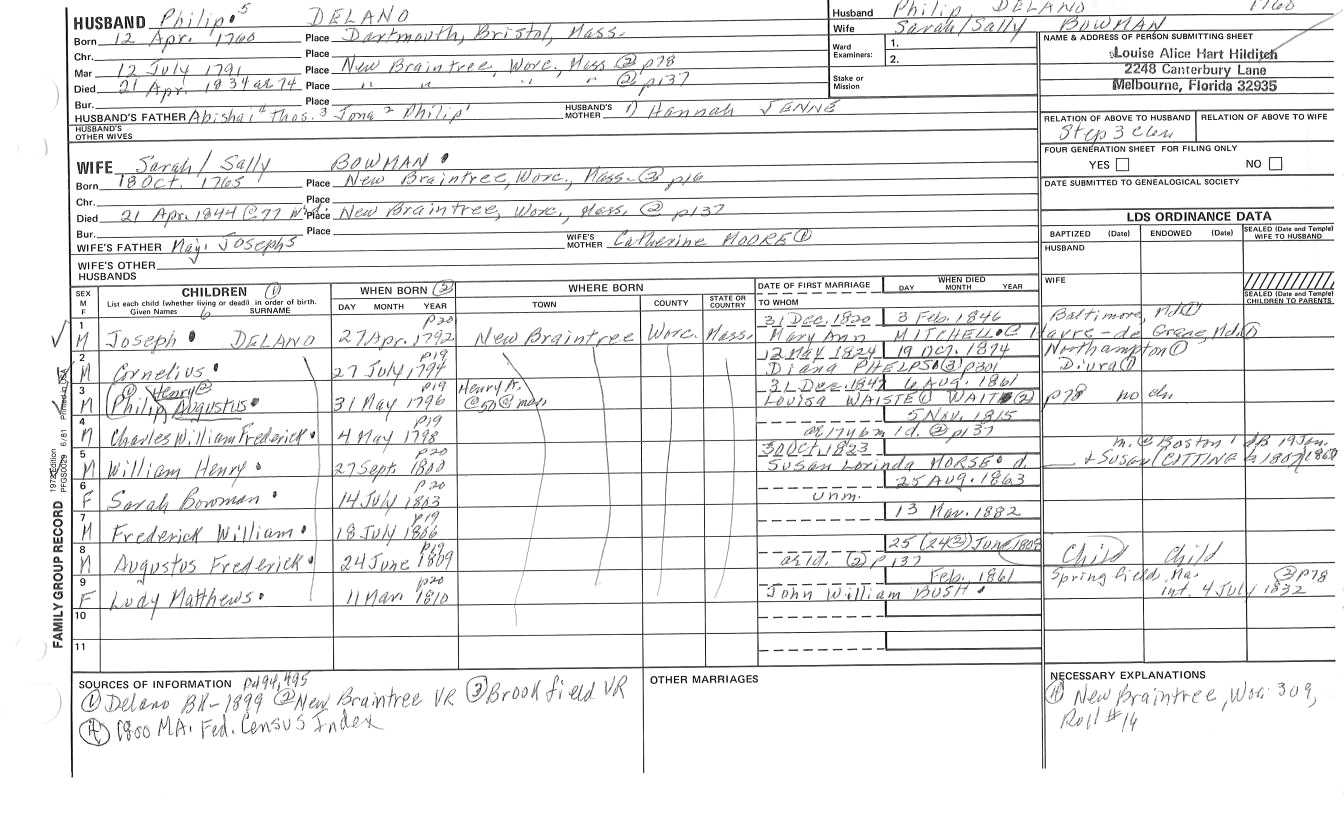 HUSBAND Philip 5 DELANO
Born 12 Apr. 1760 Place Dartmouth, Bristol, Mass.
Chr. Place
Mar 12 July 1791 Place New Braintree, Worc, Mass ② p78
Died 21 Apr. 1834 at 74 Place " " " ② p137
Bur. Place
HUSBAND'S FATHER Abishai 4 Thos. 3 Jona 2 Philip 1 HUSBAND'S MOTHER 1) Hannah JENNE
HUSBAND'S OTHER WIVES
Husband Philip DELANO 1760
Wife Sarah/Sally BOWMAN
Ward Examiners: 1.
2.
Stake or Mission
NAME & ADDRESS OF PERSON SUBMITTING SHEET
Louise Alice Hart Hilditch
2248 Canterbury Lane
Melbourne, Florida 32935
RELATION OF ABOVE TO HUSBAND RELATION OF ABOVE TO WIFE
Step 3
FOUR GENERATION SHEET FOR FILING ONLY
YES NO
DATE SUBMITTED TO GENEALOGICAL SOCIETY
WIFE Sarah/Sally BOWMAN
Born 18 Oct. 1765 Place New Braintree, Worc., Mass. ③ p16
Chr. Place
Died 21 Apr. 1844 @ 77 Place New Braintree, Worc., Mass. ② p137
Bur. Place
WIFE'S FATHER Maj. Joseph 5 WIFE'S MOTHER Catherine MOORE ①
WIFE'S OTHER HUSBANDS
LDS ORDINANCE DATA
BAPTIZED (Date) ENDOWED (Date) SEALED (Date and Temple) WIFE TO HUSBAND
HUSBAND
WIFE
SEALED (Date and Temple) CHILDREN TO PARENTS
SEX M F CHILDREN ① List each child (whether living or dead) in order of birth. Given Names 6 SURNAME WHEN BORN ③ DAY MONTH YEAR WHERE BORN TOWN COUNTY STATE OR COUNTRY DATE OF FIRST MARRIAGE TO WHOM WHEN DIED DAY MONTH YEAR
1 M Joseph DELANO 27 Apr. 1792 p20 New Braintree Worc. Mass. 31 Dec. 1820 3 Feb. 1846 Baltimore, Md. ①
Mary Ann MITCHELL @ Havre-de Grace, Md. ①
2 M Cornelius 27 July 1794 p19 12 May 1824 19 Oct. 1874 Northampton ①
Diana PHELPS ③ p301
3 M Philip Augustus ① Henry ② 31 May 1796 p19 Henry A. 31 Dec. 1847 6 Aug. 1861
Louisa WAISTE ① WAIT ② p78 no ch.
4 M Charles William Frederick 4 May 1798 p19 5 Nov. 1815
② p137
5 M William Henry 27 Sept. 1800 p20 30 Oct. 1823
Susan Lorinda MORSE d. m. @ Boston
6 F Sarah Bowman 14 July 1803 p20 unm. 25 Aug. 1863
7 M Frederick William 18 July 1806 p19 13 Mar. 1882
8 M Augustus Frederick 24 June 1809 p19 25 (24 ③) June 1809 Child Child
② p137
9 F Lucy Matthews 11 Mar. 1810 p20 Feb. 1861 Springfield, Ma. ② p78
John William BUSH int. 4 July 1832
10
11
SOURCES OF INFORMATION p494,495
① Delano BK-1899 ② New Braintree VR ③ Brookfield VR
④ 1800 MA. Fed. Census Index
OTHER MARRIAGES
NECESSARY EXPLANATIONS
④ New Braintree, Wor. 309,
Roll #14
FAMILY GROUP RECORD
PFGS0029 6/81 Printed in USA